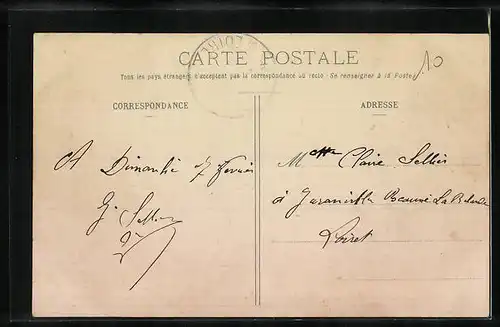 CARTE POSTALE
10
Tous les pays étrangers n'acceptent pas la correspondance au recto - Se renseigner à la Poste
CORRESPONDANCE
ADRESSE
A Dimanche 7 Février
G. Sellier
Melle Claire Sellier
à Juranville Beaune La Rolande
Loiret